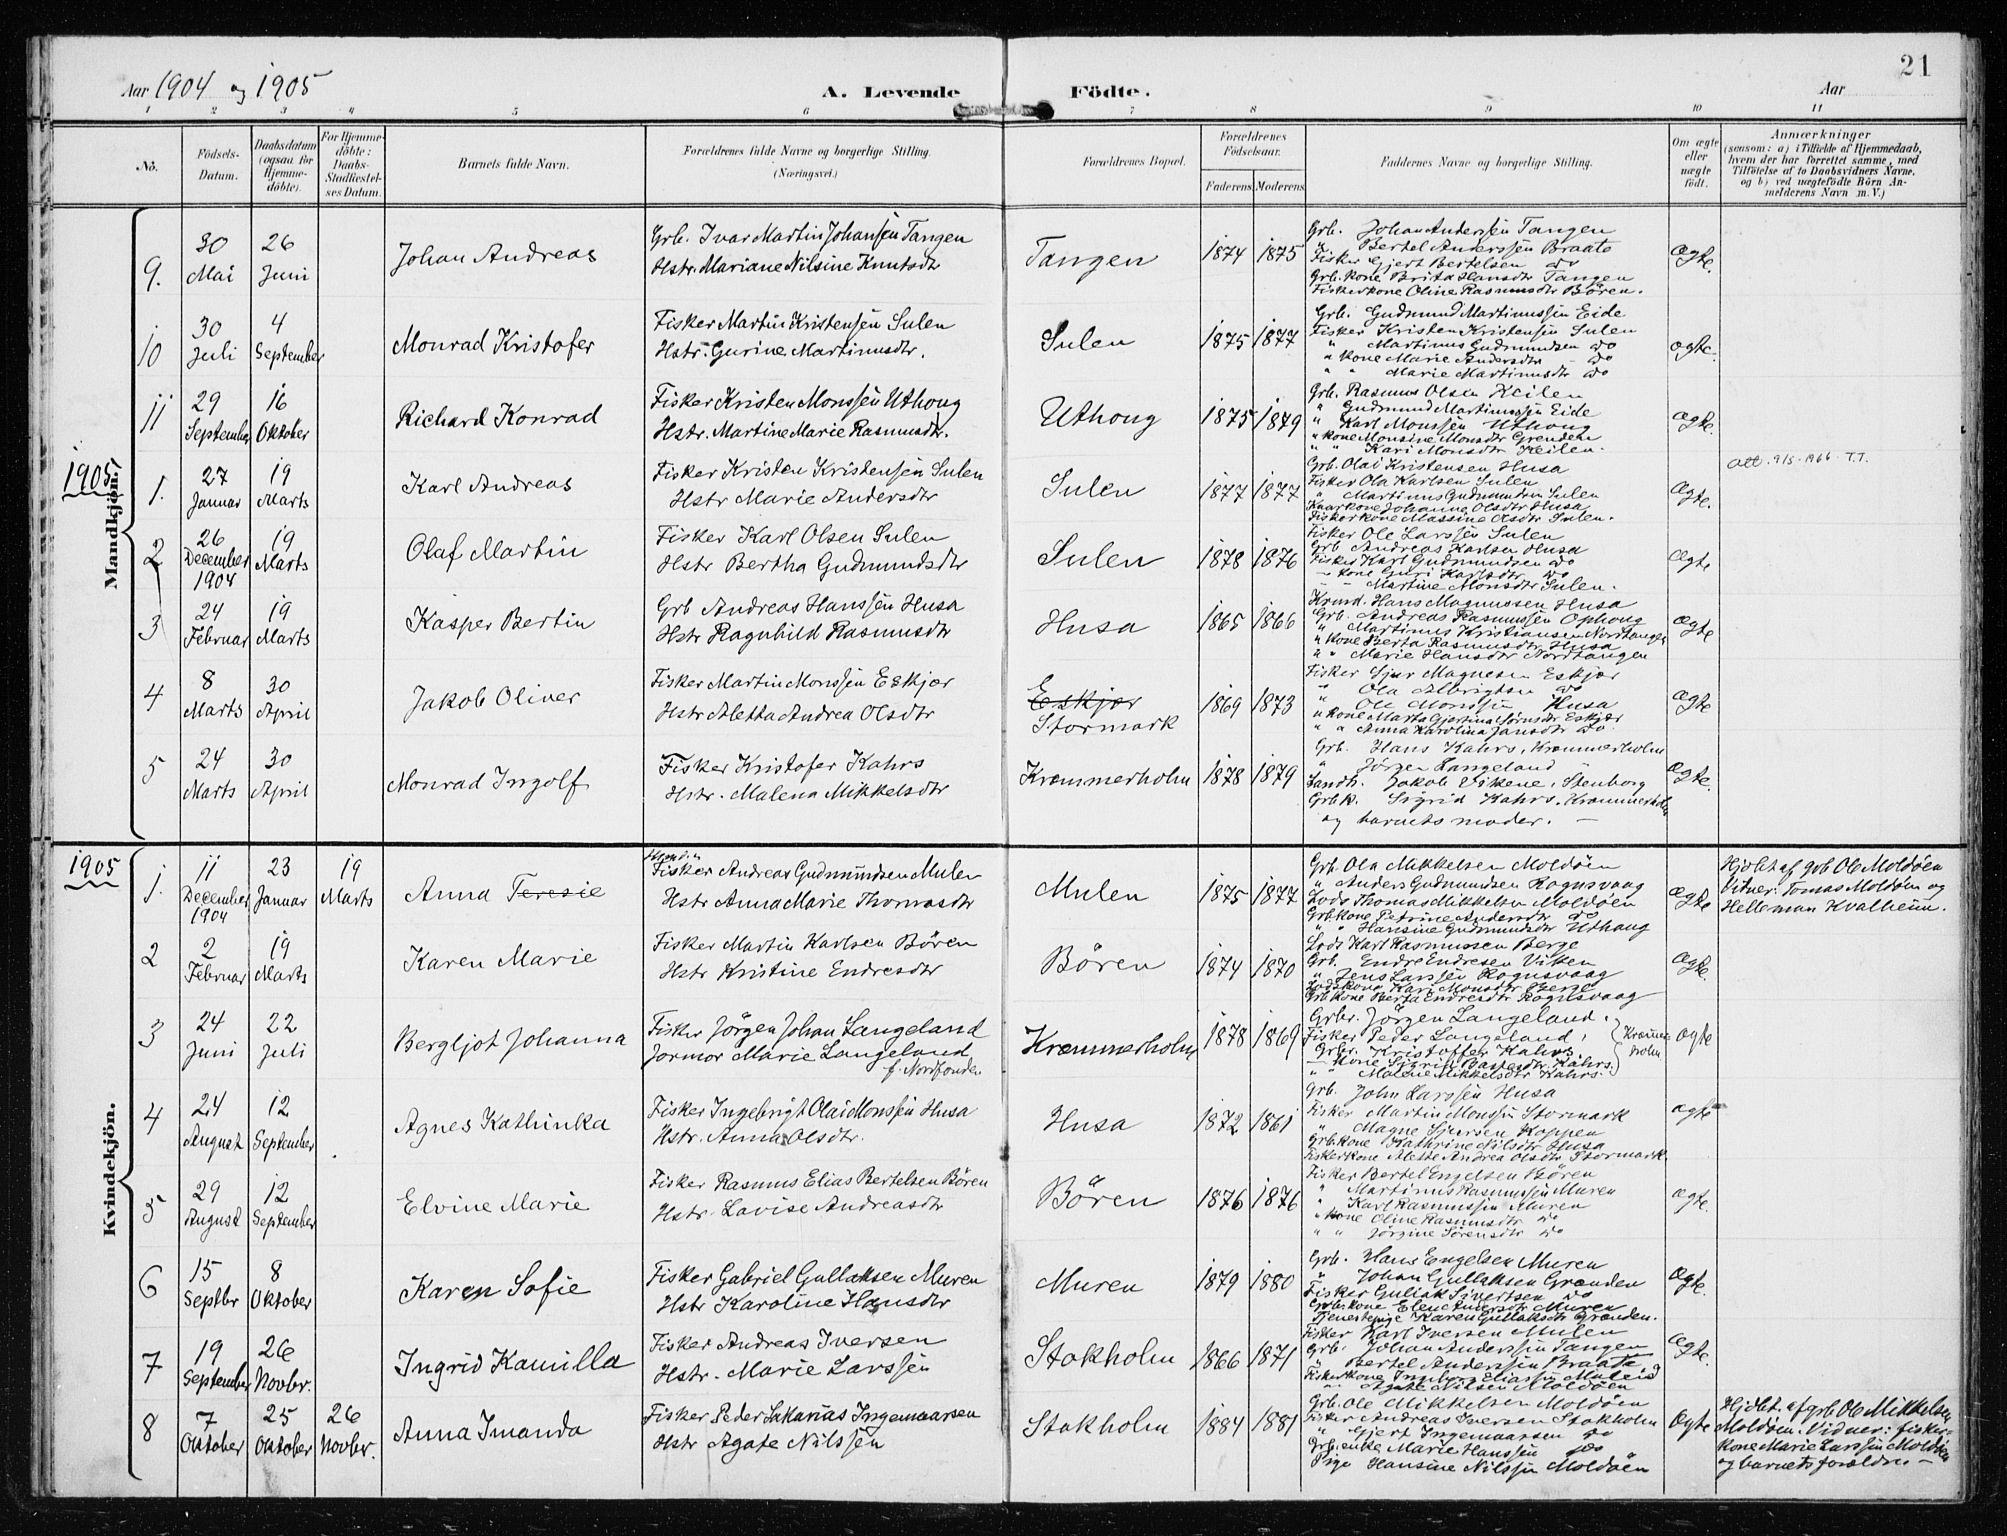 21
Aar 1904 og 1905 A. Levende Födte. Aar
1 2 3 4 5 6 7 8 9 10 11
No.
Födsels-Datum.
Daabsdatum (ogsaa for Hjemmedöbte).
For Hjemmedöbte: Daabs-Stadfæstelses Datum.
Barnets fulde Navn.
Forældrenes fulde Navne og borgerlige Stilling. (Næringsvei.)
Forældrenes Bopæl.
Forældrenes Födselsaar.
Faderens Moderens
Faddernes Navne og borgerlige Stilling.
Om ægte eller uægte födt.
Anmærkninger
(sensom: a) i Tilfælde af Hjemmedaab,
hvem der har forrettet samme, med
Tilföielse af to Daabsvidners Navne,
og b) ved uægtefödte Börn An-
melderens Navn m. V.)
Mandkjön.
9. 30 Mai 26 Juni Johan Andreas
Grb. Ivar Martin Johansen Tangen
Hstr. Mariane Nilsine Knutsdtr
Tangen 1874 1875
Grb. Johan Anderssen Tangen
" Bertel Anderssen Braate
Fisker Gjert Bertelsen do
Grb. kone Brita Hansdtr Tangen
Fiskerkone Oline Rasmusdtr Bören.
Ægte.
10 30 Juli 4 September Monrad Kristofer
Fisker Martin Kristensen Sulen
Hstr. Gurine Martinusdtr.
Sulen 1875 1877
Grb. Gudmund Martinussen Eide
Fisker Kristen Kristensen Sulen
" Martinus Gudmundsen do
" kone Marie Andersdtr - do
" " Marie Martinusdtr do
ægte.
11 29 September 16 Oktober Richard Konrad
Fisker Kristen Monssen Uthoug
Hstr. Martine Marie Rasmusdtr.
Uthoug 1875 1879
Grb. Rasmus Olsen Keilen
" Gudmund Martinussen Eide
" Karl Monssen Uthoug
" kone Monsine Monsdtr Grenden
" " Kari Monsdtr Keilen.
Ægte.
1905
1. 27 Januar 19 Marts Karl Andreas
Fisker Kristen Kristensen Sulen
Hstr Marie Andersdtr
Sulen 1877 1877
Grb. Olai Kristensen Husa
Fisker Ola Karlsen Sulen
" Martinus Gudmundsen Sulen
Kaarkone Johanne Olsdtr Husa
Fiskerkone Massine Olsdtr Sulen.
Ægte.
att. 9/5-1966 T.T.
2 26 December 1904 19 Marts Olaf Martin
Fisker Karl Olsen Sulen
Hstr Bertha Gudmundsdtr
Sulen 1878 1876
Fisker Ole Larssen Sulen
Grb Andreas Karlsen Husa
Fisker Karl Gudmundsen do
- kone Guri Karlsdtr do
- - Martine Monsdtr Sulen.
Ægte
3 24 Februar 19 Marts Kasper Bertin
Grb Andreas Hanssen Husa
Hstr Ragnhild Rasmusdtr
Husa 1865 1866
Krmd. Hans Magnussen Husa
Grb. Andreas Rasmussen Ophoug
" Martinus Kristiansen Nordtangen
" kone Berta Rasmusdtr Husa
" " Marie Hansdtr Nordtangen
Ægte
4 8 Marts 30 April Jakob Oliver
Fisker Martin Monssen Eskjær
Hstr Aletta Andrea Olsdtr
Eskjær Stormark 1869 1873
Fisker Sjur Magnesen Eskjær
" Ola Albrigtsen do
" Ole Monssen Husa
" kone Marta Gjertina Sörnsdtr Eskjær
" " Anna Karolina Jansdtr do
Ægte
5 24 Marts 30 April Monrad Ingolf
Fisker Kristofer Kahrs
Hstr. Malena Mikkelsdtr
Kræmmerholm 1878 1879
Grb. Hans Kahrs, Kræmmerholm
" Jörgen Langeland "
Landh. Jakob Vikene, Stenborg
Grbk. Sigrid Kahrs, Kræmmerholm
og barnets moder. -
Ægte.
Kvindekjön.
1905
1. 11 December 1904 23 Januar 19 Marts Anna Teresie
Fisker Andreas Gudmundsen Mulen
Hstr Anna Marie Thomasdtr
Mulen 1875 1877
Grb Ola Mikkelsen Moldöen
" Anders Gudmundsen Rognsvaag
Lods Thomas Mikkelsen Moldöen
Grbkone Petrine Andersdtr do
" " Hansine Gudmundsdtr Uthoug
Ægte
Hjdbt af grb Ole Moldöen
Vidner: Tomas Moldöen og
Helleman Kvalheim.
2 2 Februar 19 Marts Karen Marie
Fisker Martin Karlsen Bören
Hstr Kristine Endresdtr
Bören 1874 1870
Lods Karl Rasmussen Berge
Grb. Endre Endresen Vitsen
" Jens Larssen Rognsvaag
Lodskona Kari Monsdtr Berge
Grbkone Berta Endresdtr Rognsvaag
Ægte.
3 24 Juni 22 Juli Bergljot Johanna
Fisker Jörgen Johan Langeland
Jormor Marie Langeland
f. Nordfonden
Kræmmerholm 1878 1869
Grbr. Jörgen Langeland.
Fisker Peder Langeland,
Grbr. Kristoffer Kahrs.
- kone Sigrid Bastesdtr Kahrs.
" " Malene Mikkelsdtr Kahrs.
Kræmmerholm
ægte
4 24 August 12 September Agnes Kathinka
Fisker Ingebrigt Olai Monssen Husa
Hstr. Anna Olsdtr.
Husa 1872 1861
Grb. John Larssen Husa
Fisker Martin Monssen Stormark
" Magne Sjursen Koppen
Grbkone Kathrine Nilsdtr Husa
Fiskerkone Alette Andrea Olsdtr Stormark
ægte
5 29 August 12 September Elvine Marie
Fisker Rasmus Elias Bertelsen Bören
Hstr. Lovise Andreasdtr
Bören 1876 1876
Fisker Bertel Engelsen Bören
" Martinus Rasmussen Muren
" Karl Rasmussen Muren
" kone Oline Rasmusdtr do
" " Jörgine Sörensdtr do
ægte.
6 15 Septbr 8 Oktober Karen Sofie
Fisker Gabriel Gullaksen Muren
Hstr Karoline Hansdtr
Muren 1879 1880
Grb. Hans Engelsen Muren
" Johan Gullaksen Grænden
Fisker Gullak Sivertsen do
Grbkone Elen Andersdtr Muren
Tjenestepige Karen Gullaksdtr Grænden.
Ægte.
7 19 September 26 Novbr. Ingrid Kamilla
Fisker Andreas Iversen
Hstr. Marie Larssen
Stokholm 1866 1871
Fisker Karl Iversen Mulen
Grb. Johan Anderssen Tangen
" Bertel Anderssen Braate
Fiskerkone Ingeborg Eliassen
" Agate Nilsen Moldöen
Ægte.
8 7 Oktober 25 Oktober 26 Novbr. Anna Imanda
Fisker Peder Sakarias Ingemaarsen
Hstr Agate Nilssen
Stokholm 1884 1881
Grb. Ole Mikkelsen Moldöen
Fisker Andreas Iversen Stokholm
" Gjert Ingemaarsen do
Grb. enke Marie Hanssen do
Pige Hansine Nilssen Moldöen
Ægte
Hjdbt. af grb Ole Mikkelsen
Moldöen. Vidner: fisker-
kone Marie Larssen Moldöen
og barnets forældre -